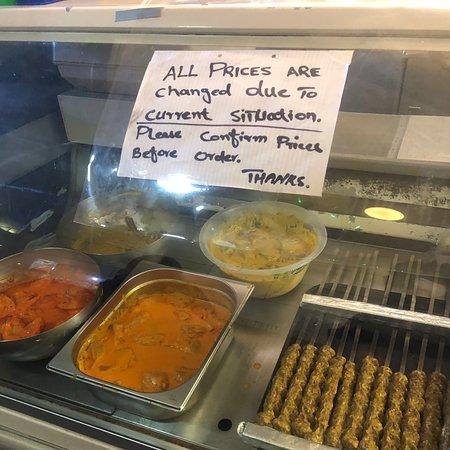 ALL PRICES ARE
changed due to
current situation.
Please Confirm Prices
Before order.
THANKS.